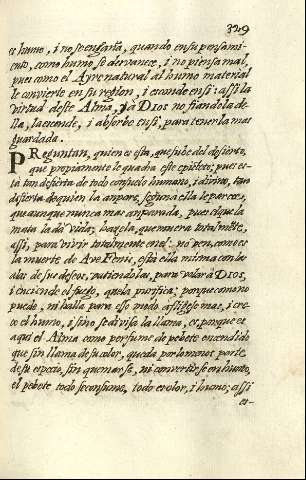 329
es humo, i no se engaña, quando en su pensami-
ento, como humo, se desvanece, i no piensa mal,
pues como el Ayre natural al humo material
le convierte en su region, i esconde en si: assi la
virtud deste Alma, ya Dios no fiandola de
lla, la esconde, i absorbe en si, para tenerla mas
guardada.
PReguntan, quien es esta, que sube del desierto,
que propiamente le quadra este epiteto; pues es-
ta tan desierta de todo consuelo humano, i divino, tan
disierta de quien la ampare, segun a ella le parece,
que aunque nunca mas amparada, pues el que la
mata la da vida; hazela, que muera totalmēte,
assi, para vivir totalmente en el: no ven, como es
la muerte de Ave Fenix, està ella misma con las
alas de sus deseos, batiendolas, para volar à Dios,
i enciende el fuego, que la purifica; porque como no
puede, ni halla para esso modo afligese mas, i cre-
ce el humo, i si no se divisa la llama, es, porque es
aqui el Alma como perfume de pebete encendido
que sin llama de su olor, queda por lo menos parte
de su especie, sin quemarse, ni convertirse en humo,
el pebete todo se consume, todo es olor, i humo; assi
es-